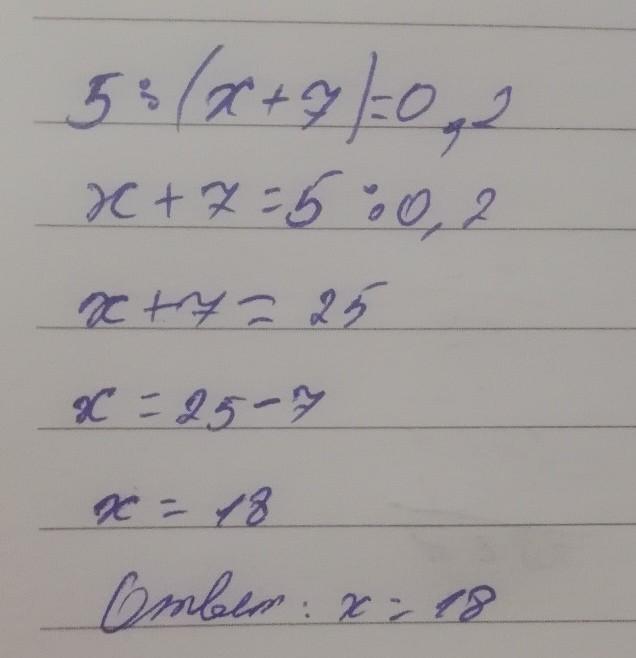 5:(x+7)=0,2
x+7=5:0,2
x+7=25
x=25-7
x=18
Ответ: x=18